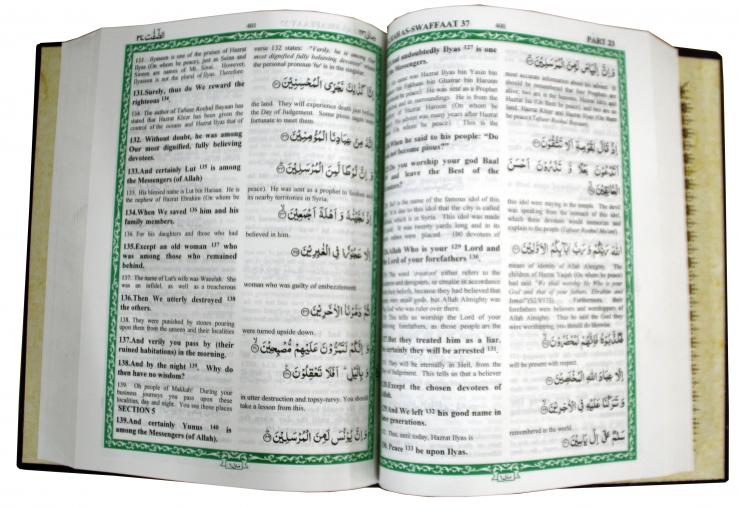 AS-SWAFFAAT 37
400
PART 23
undoubtedly Ilyas 127 is one
Messengers.
was Hazrat Ilyas bin Yasin bin
bin Fakhaas bin Ghairar bin Haroun
peace). He was sent as a Prophet
and in surroundings. He is from the
of Hazrat Haroon (On whom be
advent was many years after Hazrat
whom be peace). This is the
most accurate information about his ancestor. It
وَاِنَّ اِلْيَاسَ لَمِنَ الْمُرْسَلِيْنَ
When he said to his people: "Do
not become pious?"
اِذْ قَالَ لِقَوْمِهٖٓ اَلَا تَتَّقُوْنَ
Do you worship your god Baal
and leave the Best of the
اَتَدْعُوْنَ بَعْلًا وَّ تَذَرُوْنَ اَحْسَنَ
الْخَالِقِيْنَ
is the name of the famous idol of this
is due to this idol that the city is called
which is in Syria. This idol was made
It was twenty yards long and in its
were placed. 400 devotees of
this idol were staying in the temple. The devil
was speaking from the stomach of this idol,
which these devotees would memorize and
explain to the people
Allah Who is your 129 Lord and
the Lord of your forefathers 130.
اللّٰهَ رَبَّكُمْ وَ رَبَّ اٰبَآئِكُمُ الْاَوَّلِيْنَ
The word 'creators' either refers to the
and designers, or creator in accordance
their beliefs, because they had believed that
were small gods, but Allah Almighty was
God who was ruler over them.
tells us worship the Lord of your
forefathers, as those people are the
means of identity of Allah Almighty. The
children of Hazrat Yaqub (On whom be peace)
had said "We shall worship He Who is your
God and that of your fathers, Ebrahim and
Furthermore, their
forefathers were believers and worshippers of
Allah Almighty. Thus he said the God they
were worshipping, you should do likewise.
But they treated him as a liar,
certainly they will be arrested 131.
فَكَذَّبُوْهُ فَاِنَّهُمْ لَمُحْضَرُوْنَ
They will be eternally in Hell, from the
of Judgement. This tells us that a believer
will be present with respect.
Except the chosen devotees of
Allah.
اِلَّا عِبَادَ اللّٰهِ الْمُخْلَصِيْنَ
And We left 132 his good name in
later generations.
وَتَرَكْنَا عَلَيْهِ فِي الْاٰخِرِيْنَ
Thus, until today, Hazrat Ilyas is
remembered in the world.
130. Peace 133 be upon Ilyas.
سَلٰمٌ عَلٰٓى اِلْ يَاسِيْنَ
401
133. Ilyaseen is one of the praises of Hazrat
Ilyas (On whom be peace), just as Saina and
Sineen are names of Mt. Sinai. However,
Ilyaseen is not the plural of Ilyas. Therefore
verse 132 states: "Verily, he is among Our
most dignified fully believing devotees"
the personal pronoun 'he' is in the singular.
131.Surely, thus do We reward the
righteous 134.
اِنَّا كَذٰلِكَ نَجْزِي الْمُحْسِنِيْنَ
134. The author of Tafseer Roohul Bayaan has
stated that Hazrat Khizr has been given the
control of the oceans and Hazrat Ilyas that of
the land. They will experience death just before
the Day of Judgement. Some pious sages are
fortunate to meet them.
132. Without doubt, he was among
Our most dignified, fully believing
devotees.
اِنَّهٗ مِنْ عِبَادِنَا الْمُؤْمِنِيْنَ
133.And certainly Lut 135 is among
the Messengers (of Allah)
وَ اِنَّ لُوْطًا لَّمِنَ الْمُرْسَلِيْنَ
135. His blessed name is Lut bin Haraan. He
is the nephew of Hazrat Ebrahim (On whom be
peace). He was sent as a prophet to Sodom and
its nearby territories in Syria.
134.When We saved 136 him and his
family members.
اِذْ نَجَّيْنٰهُ وَ اَهْلَهٗٓ اَجْمَعِيْنَ
136. For his daughters and those who had
believed in him.
135.Except an old woman 137 who
was among those who remained
behind.
اِلَّا عَجُوْزًا فِي الْغٰبِرِيْنَ
137. The name of Lut's wife was Waselah. She
was an infidel, as well as a treacherous
woman who was guilty of embezzlement.
136.Then We utterly destroyed 138
the others.
ثُمَّ دَمَّرْنَا الْاٰخَرِيْنَ
138. They were punished by stones pouring
upon them from the unseen and their localities
were turned upside down.
137.And verily you pass by (their
ruined habitations) in the morning.
وَاِنَّكُمْ لَتَمُرُّوْنَ عَلَيْهِمْ مُّصْبِحِيْنَ
138.And by the night 139. Why do
then have no wisdom?
وَ بِالَّيْلِ اَفَلَا تَعْقِلُوْنَ
139. Oh people of Makkah! During your
business journeys you pass upon these
localities, day and night. You see those places
in utter destruction and topsy-turvy. You should
take a lesson from this.
SECTION 5
139.And certainly Yunus 140 is
among the Messengers (of Allah).
وَاِنَّ يُوْنُسَ لَمِنَ الْمُرْسَلِيْنَ